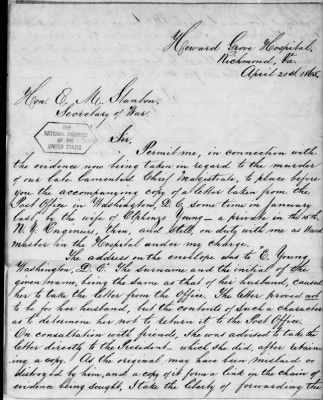 Howard Grove Hospital,
Richmond, Va.
April 21st 1865.
Hon. E. M. Stanton,
Secretary of War.
THE
NATIONAL ARCHIVES
OF THE
UNITED STATES
Sir,
Permit me, in connection with
the evidence now being taken in regard to the murder
of our late lamented Chief Magistrate, to place before
you the accompanying copy of a letter taken from the
Post Office in Washington, D. C. some time in January
last by the wife of Young – a private in the 15th
N. Y. Engineers, then, and still, on duty with me as Ward
master in the Hospital under my charge.
The address on the envelope was to "E. Young
Washington, D. C." The surname and the initial of the
given name, being the same as that of her husband, caused
her to take the letter from the Office. The letter proved not
to be for her husband, but the contents of such a character
as to determine her not to return it to the Post Office.
On consultation with friends, she was advised to take the
letter directly to the President – which she did, after retain-
ing a copy. As the original may have been mislaid or
destroyed by him, and a copy of it form a link in the chain of
evidence being sought, I take the liberty of forwarding the